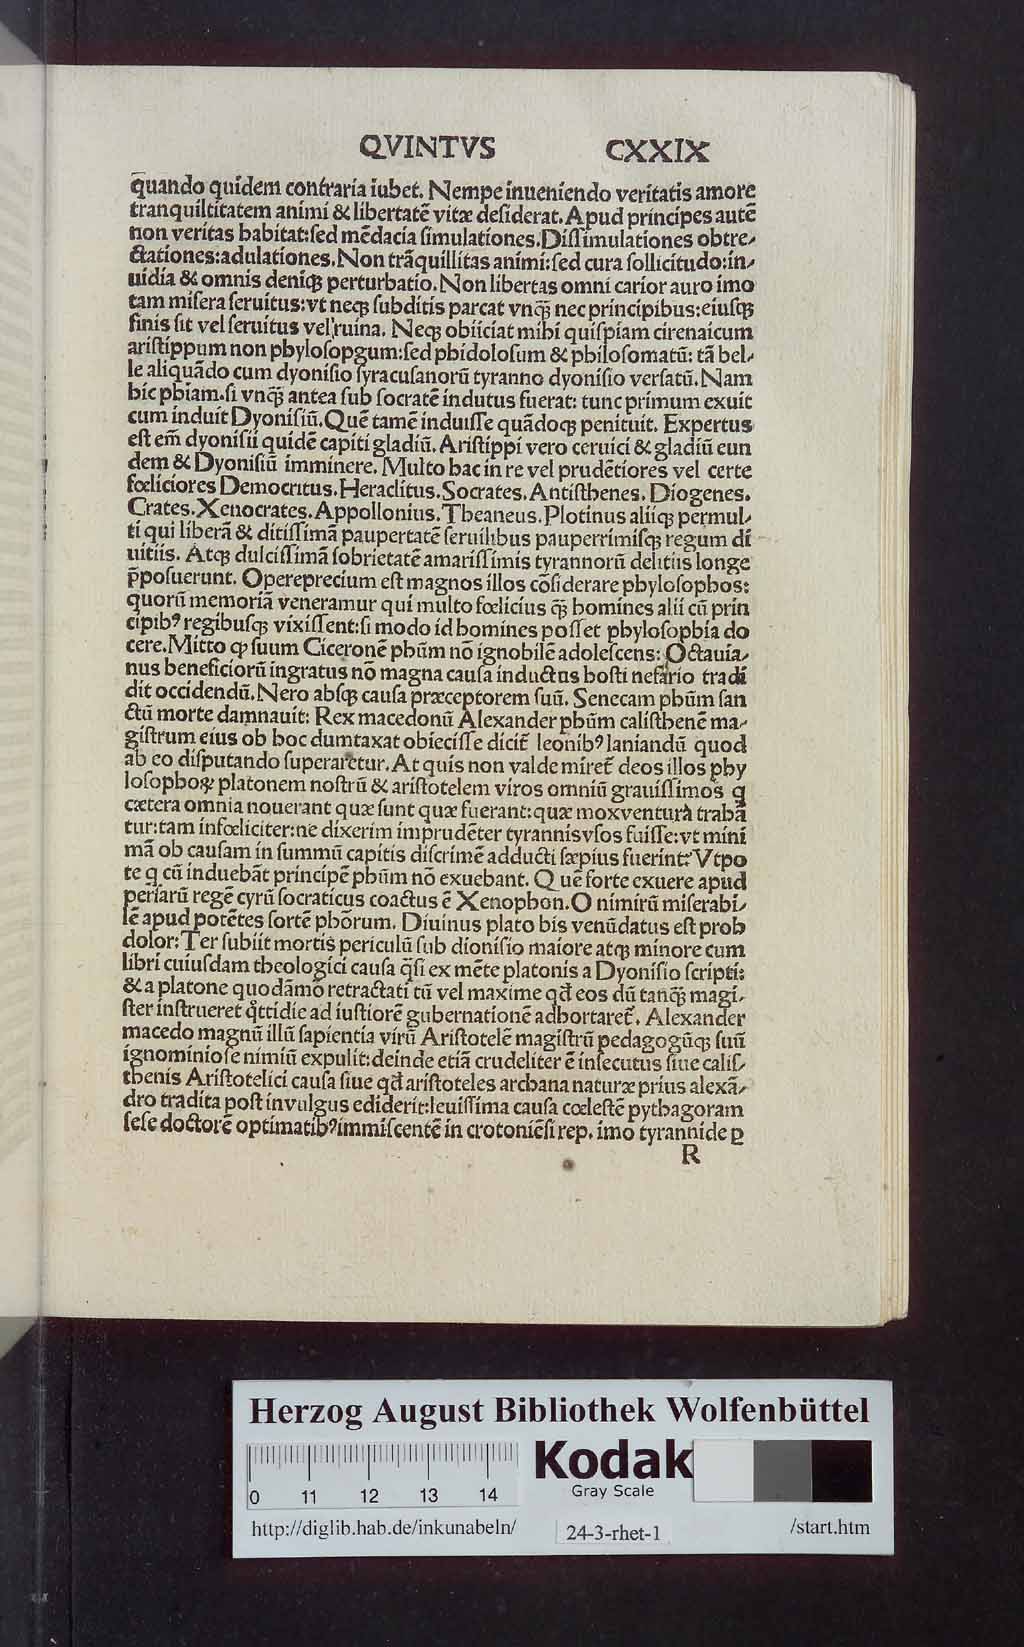 QVINTVS CXXIX
q̄uando quidem contraria iubet. Nempe inueniendo veritatis amore
tranquiltitatem animi & libertatē vitæ desiderat. Apud principes autē
non veritas habitat: sed mēdacia simulationes. Dissimulationes obtre-
ctationes: adulationes. Non trāquillitas animi: sed cura sollicitudo: in-
uidia & omnis deniqꝫ perturbatio. Non libertas omni carior auro imo
tam misera seruitus: vt neqꝫ subditis parcat vnq̄ꝫ nec principibus: eiusqꝫ
finis sit vel seruitus vel ruina. Neqꝫ obiiciat mihi quispiam cirenaicum
aristippum non phylosopgum: sed phidolosum & philosomatū: tā bel-
le aliquādo cum dyonisio syracusanorū tyranno dyonisio versatū. Nam
hic phiam. si vnq̄ꝫ antea sub socratē indutus fuerat: tunc primum exuit
cum induit Dyonisiū. Quē tamē induisse quādoqꝫ penituit. Expertus
est em̄ dyonisii quidē capiti gladiū. Aristippi vero ceruici & gladiū eun
dem & Dyonisiū imminere. Multo hac in re vel prudētiores vel certe
fœliciores Democritus. Heraclitus. Socrates. Antisthenes. Diogenes.
Crates. Xenocrates. Appollonius. Theaneus. Plotinus aliiqꝫ permul-
ti qui liberā & ditissimā paupertatē seruilibus pauperrimisqꝫ regum di
uitiis. Atqꝫ dulcissimā sobrietatē amarissimis tyrannorū delitiis longe
p̄posuerunt. Opereprecium est magnos illos cōsiderare phylosophos:
quorū memoriā veneramur qui multo fœlicius q̄ꝫ homines alii cū prin
cipibꝰ regibusqꝫ vixissent: si modo id homines posset phylosophia do
cere. Mitto ꝙ suum Ciceronē phūm nō ignobilē adolescens: Octauia-
nus beneficiorū ingratus nō magna causa inductus hosti nefario tradi
dit occidendū. Nero absqꝫ causa præceptorem suū. Senecam phūm san
ctū morte damnauit: Rex macedonū Alexander phūm calisthenē ma-
gistrum eius ob hoc dumtaxat obiecisse dicit̄ leonibꝰ laniandū quod
ab eo disputando superaretur. At quis non valde miret̄ deos illos phy
losophoꝝ platonem nostrū & aristotelem viros omniū grauissimos q
cætera omnia nouerant quæ sunt quæ fuerant: quæ mox ventura trahā
tur: tam infœliciter: ne dixerim imprudēter tyrannis vsos fuisse: vt mini
mā ob causam in summū capitis discrimē adducti sæpius fuerint? Vtpo
te q cū induebāt principē phūm nō exuebant. Quē forte exuere apud
persarū regē cyrū socraticus coactus ē Xenophon. O nimirū miserabi-
lē apud potētes sortē phōrum. Diuinus plato bis venūdatus est proh
dolor: Ter subiit mortis periculū sub dionisio maiore atqꝫ minore cum
libri cuiusdam theologici causa q̄si ex mēte platonis a Dyonisio scripti:
& a platone quodāmō retractati tū vel maxime qd̄ eos dū tanq̄ꝫ magi-
ster instrueret qͦttidie ad iustiorē gubernationē adhortaret̄. Alexander
macedo magnū illū sapientia virū Aristotelē magistrū pedagogūqꝫ suū
ignominiose nimiū expulit: deinde etiā crudeliter ē insecutus siue calis-
thenis Aristotelici causa siue qd̄ aristoteles archana naturæ prius alexā-
dro tradita post in vulgus ediderit: leuissima causa cœlestē pythagoram
sese doctorē optimatibꝰ immiscentē in crotoniēsi rep. imo tyrannide ꝑ
R
Herzog August Bibliothek Wolfenbüttel
Kodak
Gray Scale
0 11 12 13 14
http://diglib.hab.de/inkunabeln/ 24-3-rhet-1 /start.htm